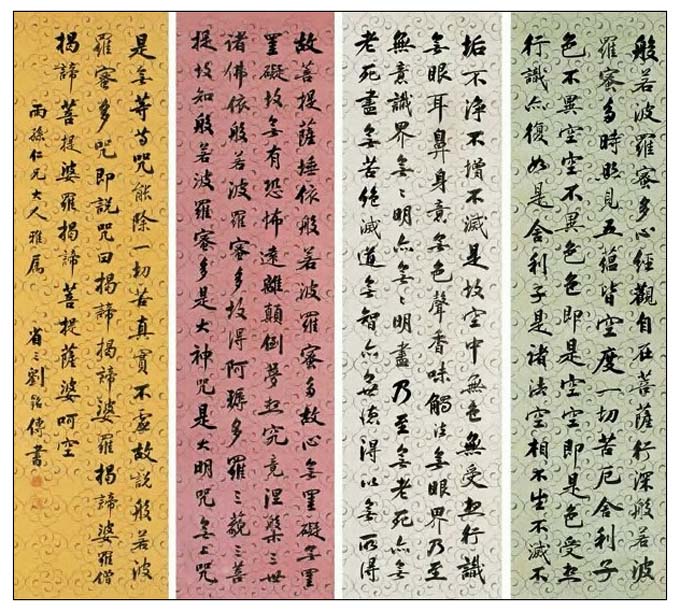 般若波羅蜜多心經觀自在菩薩行深般若波
羅蜜多時照見五蘊皆空度一切苦厄舍利子
色不異空空不異色色即是空空即是色受想
行識亦復如是舍利子是諸法空相不生不滅不
垢不淨不增不滅是故空中無色無受想行識
無眼耳鼻身意無色聲香味觸法無眼界乃至
無意識界無〻明亦無〻明盡乃至無老死亦無
老死盡無苦絕滅道無智亦無德得以無所得
故菩提薩埵依般若波羅蜜多故心無罣礙無罣
罣礙故無有恐怖遠離顛倒夢想究竟涅槃三世
諸佛依般若波羅蜜多故得阿耨多羅三藐三菩
提故知般若波羅蜜多是大神咒是大明咒無上咒
是無等等咒能除一切苦真實不虛故說般若波
羅蜜多咒即說咒曰揭諦揭諦婆羅揭諦婆羅僧
揭諦菩提婆羅揭諦菩提薩婆呵空
雨孫仁兄大人雅屬
省三劉銘傳書